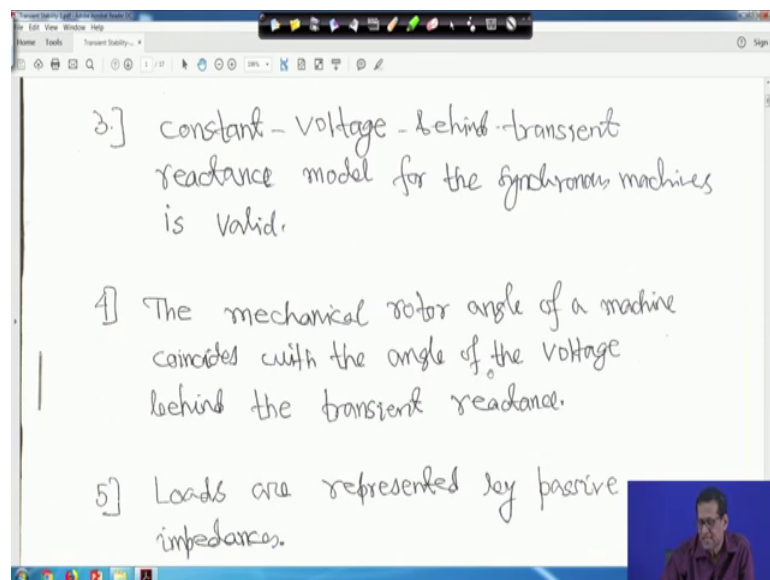 Transient Stability-I.pdf - Adobe Acrobat Reader DC
File Edit View Window Help
Home Tools Transient Stability-... ×
Sign
1 / 17
3.] constant-voltage-behind-transient
reactance model for the synchronous machines
is valid.
4] The mechanical rotor angle of a machine
coincides with the angle of the voltage
behind the transient reactance.
5] Loads are represented by passive
impedances.